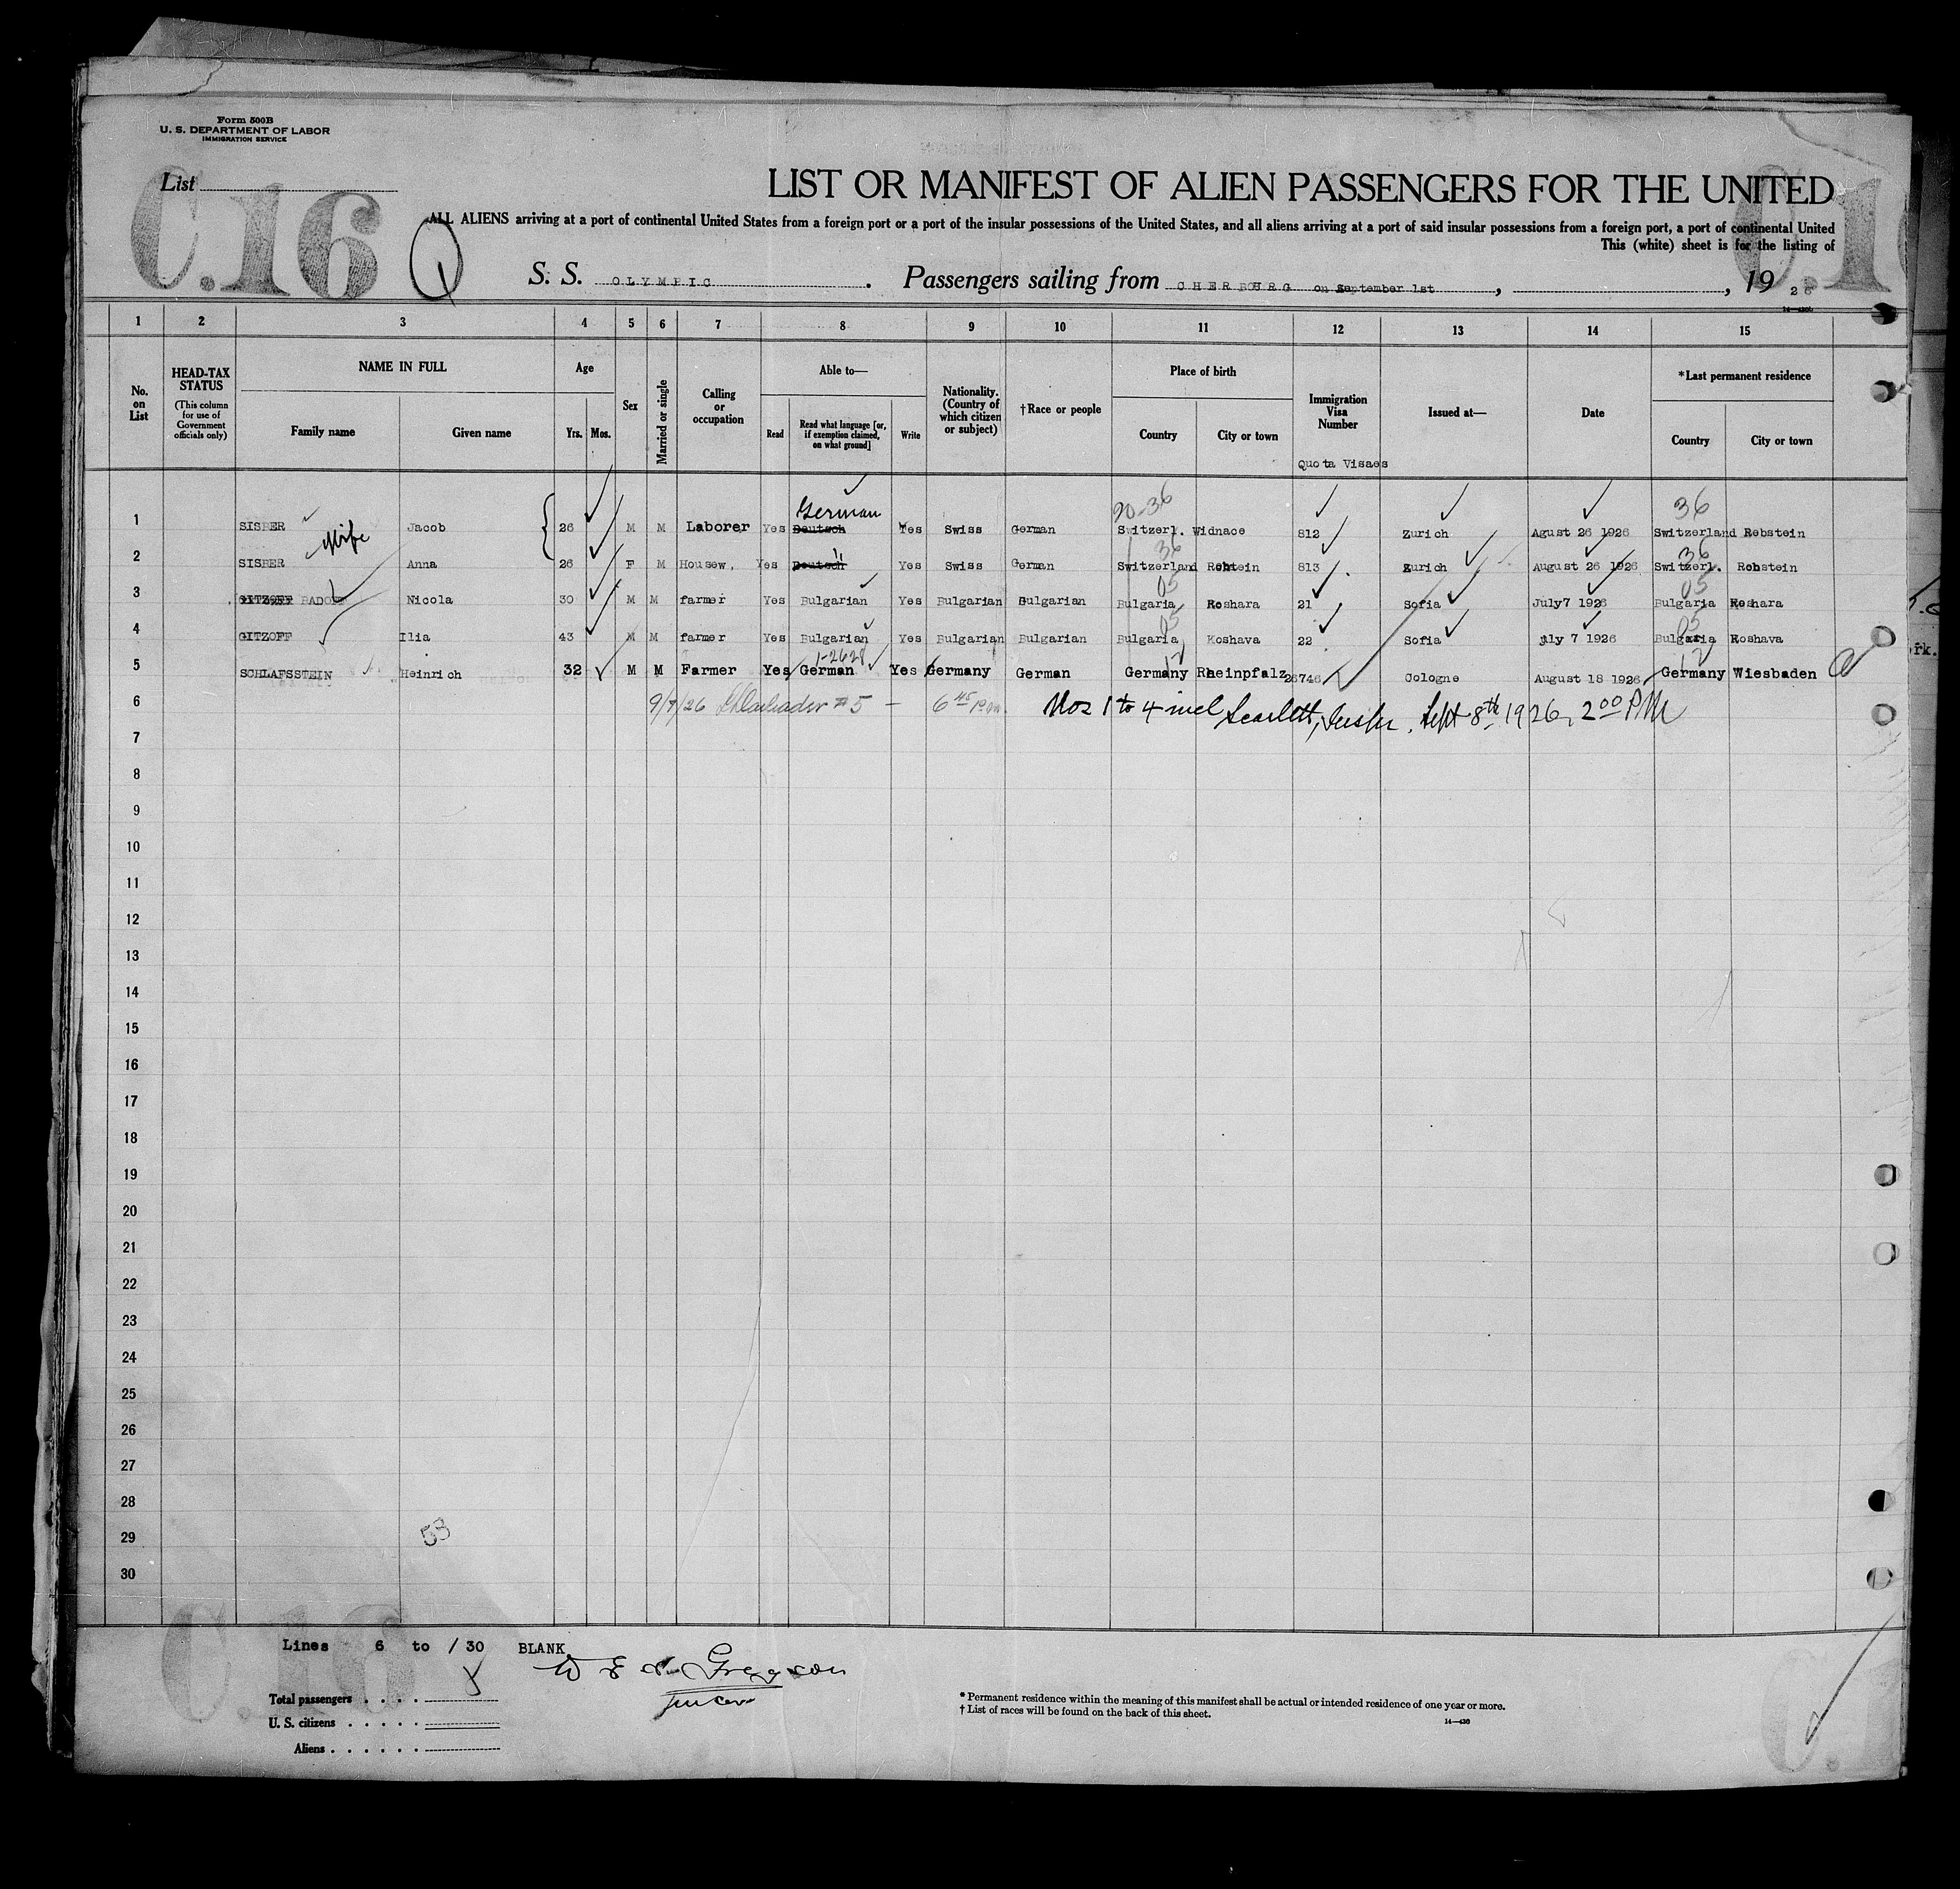 Form 500B
U. S. DEPARTMENT OF LABOR
IMMIGRATION SERVICE
List
C.16
C.1
LIST OR MANIFEST OF ALIEN PASSENGERS FOR THE UNITED
ALL ALIENS arriving at a port of continental United States from a foreign port or a port of the insular possessions of the United States, and all aliens arriving at a port of said insular possessions from a foreign port, a port of continental United
This (white) sheet is for the listing of
S. S. OLYMPIC. Passengers sailing from CHERBOURG on September 1st, , 19 26
1 2 3 4 5 6 7 8 9 10 11 12 13 14 15
No. on List
HEAD-TAX STATUS
(This column for use of Government officials only)
NAME IN FULL
Family name Given name
Age
Yrs. Mos.
Sex
Married or single
Calling or occupation
Able to—
Read
Read what language [or, if exemption claimed, on what ground]
Write
Nationality. (Country of which citizen or subject)
†Race or people
Place of birth
Country City or town
Immigration Visa Number
Quota Visaes
Issued at—
Date
*Last permanent residence
Country City or town
German 20-36 36
1 SISBER Jacob 26 M M Laborer Yes Deutsch Yes Swiss German Switzerl. Widnace 812 Zurich Agust 26 1926 Switzerland Rebstein
Wife
" 36 36
2 SISBER Anna 26 F M Housew. Yes Deutsch Yes Swiss German Switzerland Rebtein 813 Zurich August 26 1926 Switzerl. Rebstein
05 05
3 GITZOFF RADOFF Nicola 30 M M farmer Yes Bulgarian Yes Bulgarian Bulgarian Bulgaria Koshara 21 Sofia July7 1926 Bulgaria Koshara
05 05
4 GITZOFF Ilia 43 M M farmer Yes Bulgarian Yes Bulgarian Bulgarian Bulgaria Koshava 22 Sofia July 7 1926 Bulgaria Koshava
1-2628 12 12
5 SCHLAFSSTEIN Heinrich 32 M M Farmer Yes German Yes Germany German Germany Rheinpfalz 26746 Cologne August 18 1926 Germany Wiesbaden
6 9/7/26 #5 — 6 45 P.m. Nos 1 to 4 incl Scarlett, Sept 8th 1926, 2 00 PM
7
8
9
10
11
12
13
14
15
16
17
18
19
20
21
22
23
24
25
26
27
28
29 53
30
C.16
Lines 6 to / 30 BLANK
Total passengers
U. S. citizens
Aliens
* Permanent residence within the meaning of this manifest shall be actual or intended residence of one year or more.
† List of races will be found on the back of this sheet.
14—430